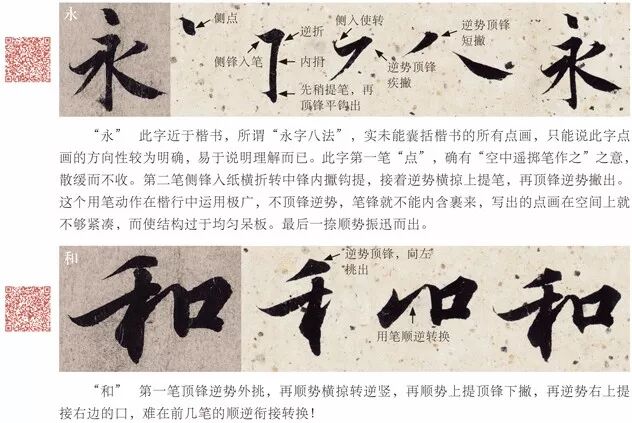 永
永
永
侧点
侧锋入笔
逆折
内捐
先稍提笔，再
顶锋平钩出
侧入使转
逆势顶锋
疾撇
逆势顶锋
短撇
“永” 此字近于楷书，所谓“永字八法”，实未能囊括楷书的所有点画，只能说此字点
画的方向性较为明确，易于说明理解而已。此字第一笔“点”，确有“空中遥掷笔作之”之意，
散缓而不收。第二笔侧锋入纸横折转中锋内擫钩提，接着逆势横掠上提笔，再顶锋逆势撇出。
这个用笔动作在楷行中运用极广，不顶锋逆势，笔锋就不能内含裹来，写出的点画在空间上就
不够紧凑，而使结构过于均匀呆板。最后一捺顺势振迅而出。
和
和
逆势顶锋，向左
挑出
用笔顺逆转换
和
“和” 第一笔顶锋逆势外挑，再顺势横掠转逆竖，再顺势上提顶锋下撇，再逆势右上提
接右边的口，难在前几笔的顺逆衔接转换！